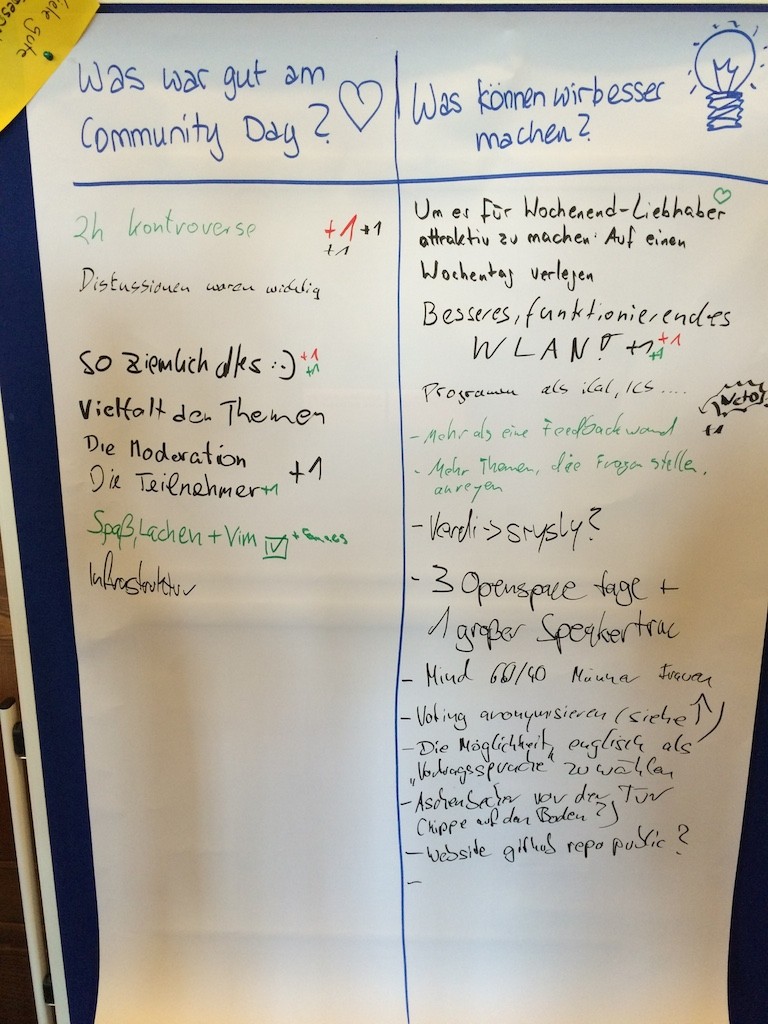 Viele gute
Was war gut am
Community Day?
2h kontroverse +1 +1
+1
Diskussionen waren wichtig
So ziemlich alles :-) +1
+1
Vielfalt den Themen
Die Moderation
+1
Die Teilnehmer +1
Spaß, Lachen + Vim
Infrastruktur
Was können wir besser
machen?
Um es für Wochenend-Liebhaber
attraktiv zu machen: Auf einen
Wochentag verlegen
Besseres, funktionierendes
WLAN! +1 +1
+1
Programm als ical, ICS ....
- Mehr als eine Feedbackwand
+1
- Mehr Themen, die Fragen stellen,
anregen
- Verdi -> srysly?
- 3 Openspace tage +
1 großer Speakertrac
- Mind 60/40 Männer Frauen
- Voting anonymisieren (siehe ↑)
- Die Möglichkeit, englisch als
"Vortragssprache" zu wählen
- Aschenbecher vor der Tür
(Kippe auf den Boden?)
- Website github repo public?
-